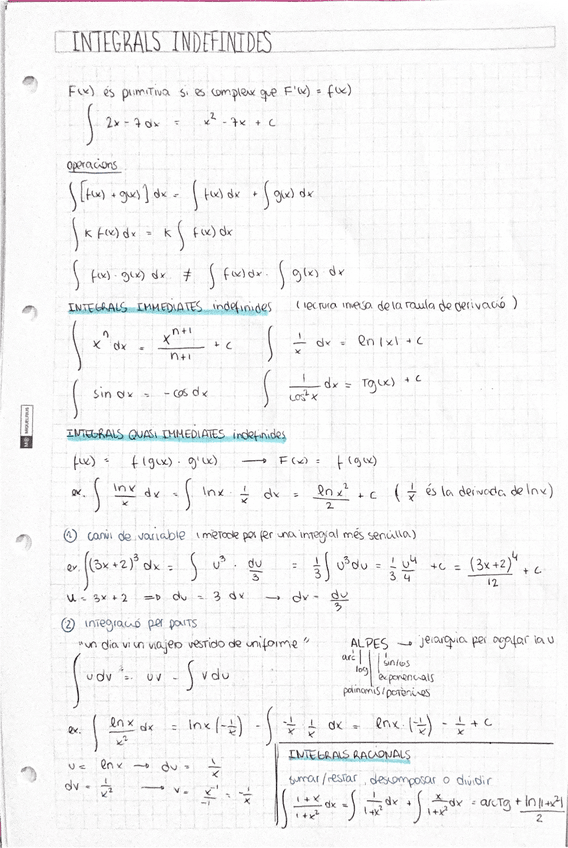 INTEGRALS INDEFINIDES
F(x) és primitiva si es compleix que F'(x) = f(x)
∫ 2x - 7 dx = x² - 7x + c
operacions
∫ [f(x) + g(x)] dx = ∫ f(x) dx + ∫ g(x) dx
∫ K f(x) dx = K ∫ f(x) dx
∫ f(x) · g(x) dx ≠ ∫ f(x) dx · ∫ g(x) dx
INTEGRALS IMMEDIATES indefinides (lectura inversa de la taula de derivació)
∫ xⁿ dx = xⁿ⁺¹/n+1 + c   ∫ 1/x dx = ln|x| + c
∫ sin dx = -cos dx   ∫ 1/cos²x dx = Tg(x) + c
INTEGRALS QUASI IMMEDIATES indefinides
f(x) = f(g(x) · g'(x) → F(x) = f(g(x)
ex. ∫ lnx/x dx = ∫ lnx · 1/x dx = lnx²/2 + c (1/x és la derivada de lnx)
① canvi de variable (mètode per fer una integral més senzilla)
ex. ∫(3x+2)³ dx = ∫ u³ · du/3 = 1/3 ∫ u³ du = 1/3 u⁴/4 + c = (3x+2)⁴/12 + c
u = 3x + 2 ⇒ du = 3 dx → dv = du/3
② integració per parts
"un dia vi un viajero vestido de uniforme"   ALPES → jerarquia per agafar la u
arc   sin/cos
log   exponencials
polinomis/potències
∫ u dv = uv - ∫ v du
ex. ∫ lnx/x² dx = lnx (-1/x) - ∫ -1/x · 1/x dx = lnx · (-1/x) - 1/x + c
u = lnx → du = 1/x
dv = 1/x² → v = x⁻¹/-1 = -1/x
INTEGRALS RACIONALS
sumar/restar, descomposar o dividir
∫ 1+x/1+x² dx = ∫ 1/1+x² dx + ∫ x/1+x² dx = arctg + ln|1+x²|/2